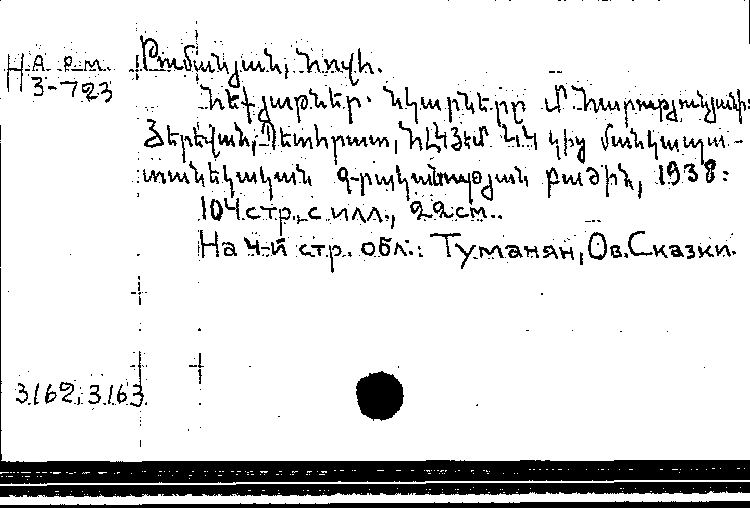 Арм.
3-723
Թումանյան, Հովհ.
Հեքյաթներ. նկարները Մ. Հարությունյանի:
Յերեվան, Պետհրատ, ՀԼԿՅԵՄ ԿԿ կից մանկապա-
տանեկական գրականության բաժին, 1938:
104 стр., с илл., 22 см..
На 4-й стр. обл.: Туманян, Ов. Сказки.
3162, 3163